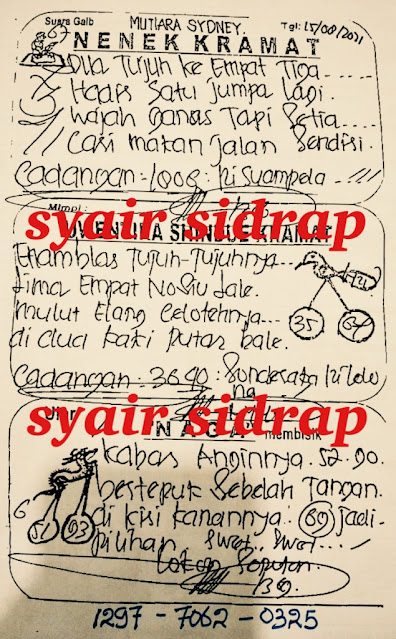 Suara Gaib MUTIARA SYDNEY. Tgl: 15/08/2021
NENEK KRAMAT
67
Dua Tujuh ke Empat Tiga.....
Habis Satu jumpa Lagi.
Wajah Ganas Tapi Setia....
Cari makan jalan Sendiri
Cadangan: 1006:
syair sidrap
Mimpi:
KRAMAT
Enamblas Tujuh-Tujuhnya...
Lima Empat
mulut Elang Celotehnya...
di dua kaki Putar bale.
35
Cadangan: 3640:
syair sidrap
Ular NAGA membisik
Kabas Anginnya. 52.90.
bertepuk Sebelah Tangan.
di Kiri Kanannya. 89 jadi
pilihan Swet.. Swet....
52 03
6
1297 - 7062 - 0325